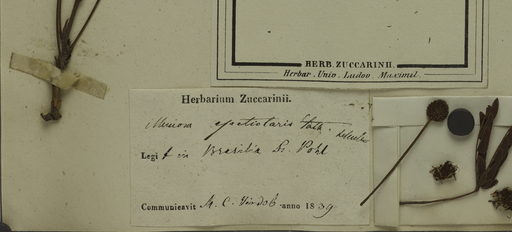 HERB. ZUCCARINII.
Herbar. Univ. Ludov. Maximil.
Herbarium Zuccarinii.
Legit in Brasilia Dr. Pohl
Communicavit M. C. Vindob. anno 1839